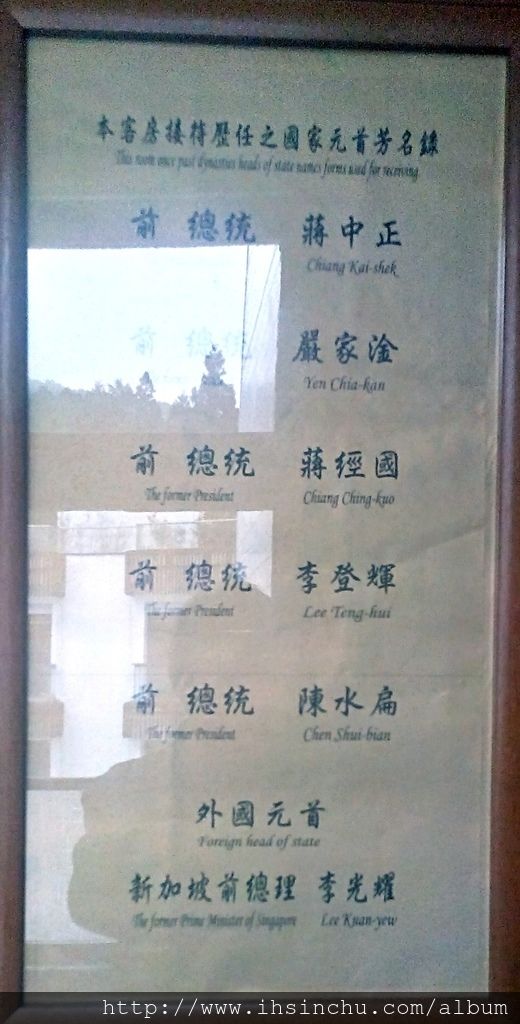 本客房接待歷任之國家元首芳名錄
This room once past dynasties heads of state names forms used for receiving.
前 總統 蔣中正
Chiang Kai-shek
前 總統 嚴家淦
Yen Chia-kan
前 總統 蔣經國
The former President Chiang Ching-kuo
前 總統 李登輝
The former President Lee Teng-hui
前 總統 陳水扁
The former President Chen Shui-bian
外國元首
Foreign head of state
新加坡前總理 李光耀
The former Prime Minister of Singapore Lee Kuan-yew
http://www.ihsinchu.com/album